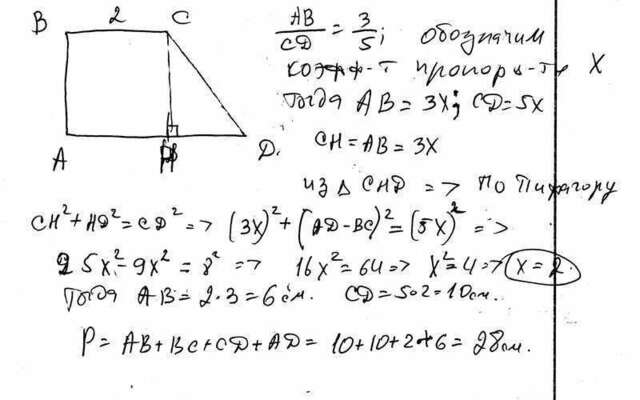 B 2 C
A H D.
AB/CD = 3/5; обозначим
коэфф-т пропорц-ти X
тогда AB = 3X; CD = 5X
CH = AB = 3X
из Δ CHD => по Пифагору
CH² + HD² = CD² => (3X)² + (AD - BC)² = (5X)² =>
25X² - 9X² = 8² => 16X² = 64 => X² = 4 => X = 2.
Тогда AB = 2·3 = 6 см. CD = 5·2 = 10 см.
P = AB + BC + CD + AD = 10 + 10 + 2 + 6 = 28 см.